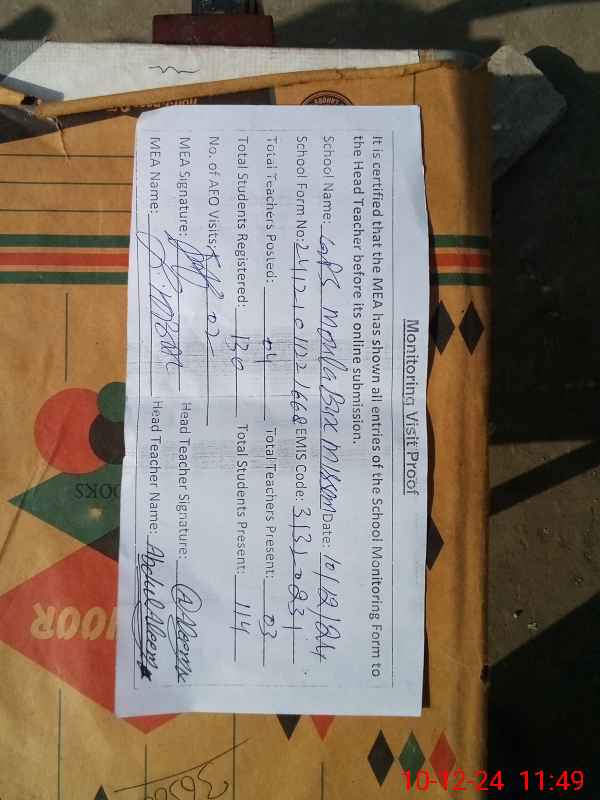 Monitoring Visit Proof
It is certified that the MEA has shown all entries of the School Monitoring Form to
the Head Teacher before its online submission.
School Name: GBPS Moula Bux Date: 10/12/24
School Form No: EMIS Code:
Total Teachers Posted: 04 Total Teachers Present: 03
Total Students Registered: 130 Total Students Present: 114
No. of AEO Visits: 02
MEA Signature: Head Teacher Signature:
MEA Name: Head Teacher Name: Abdul Aleem
NOOR
OOKS
10-12-24 11:49